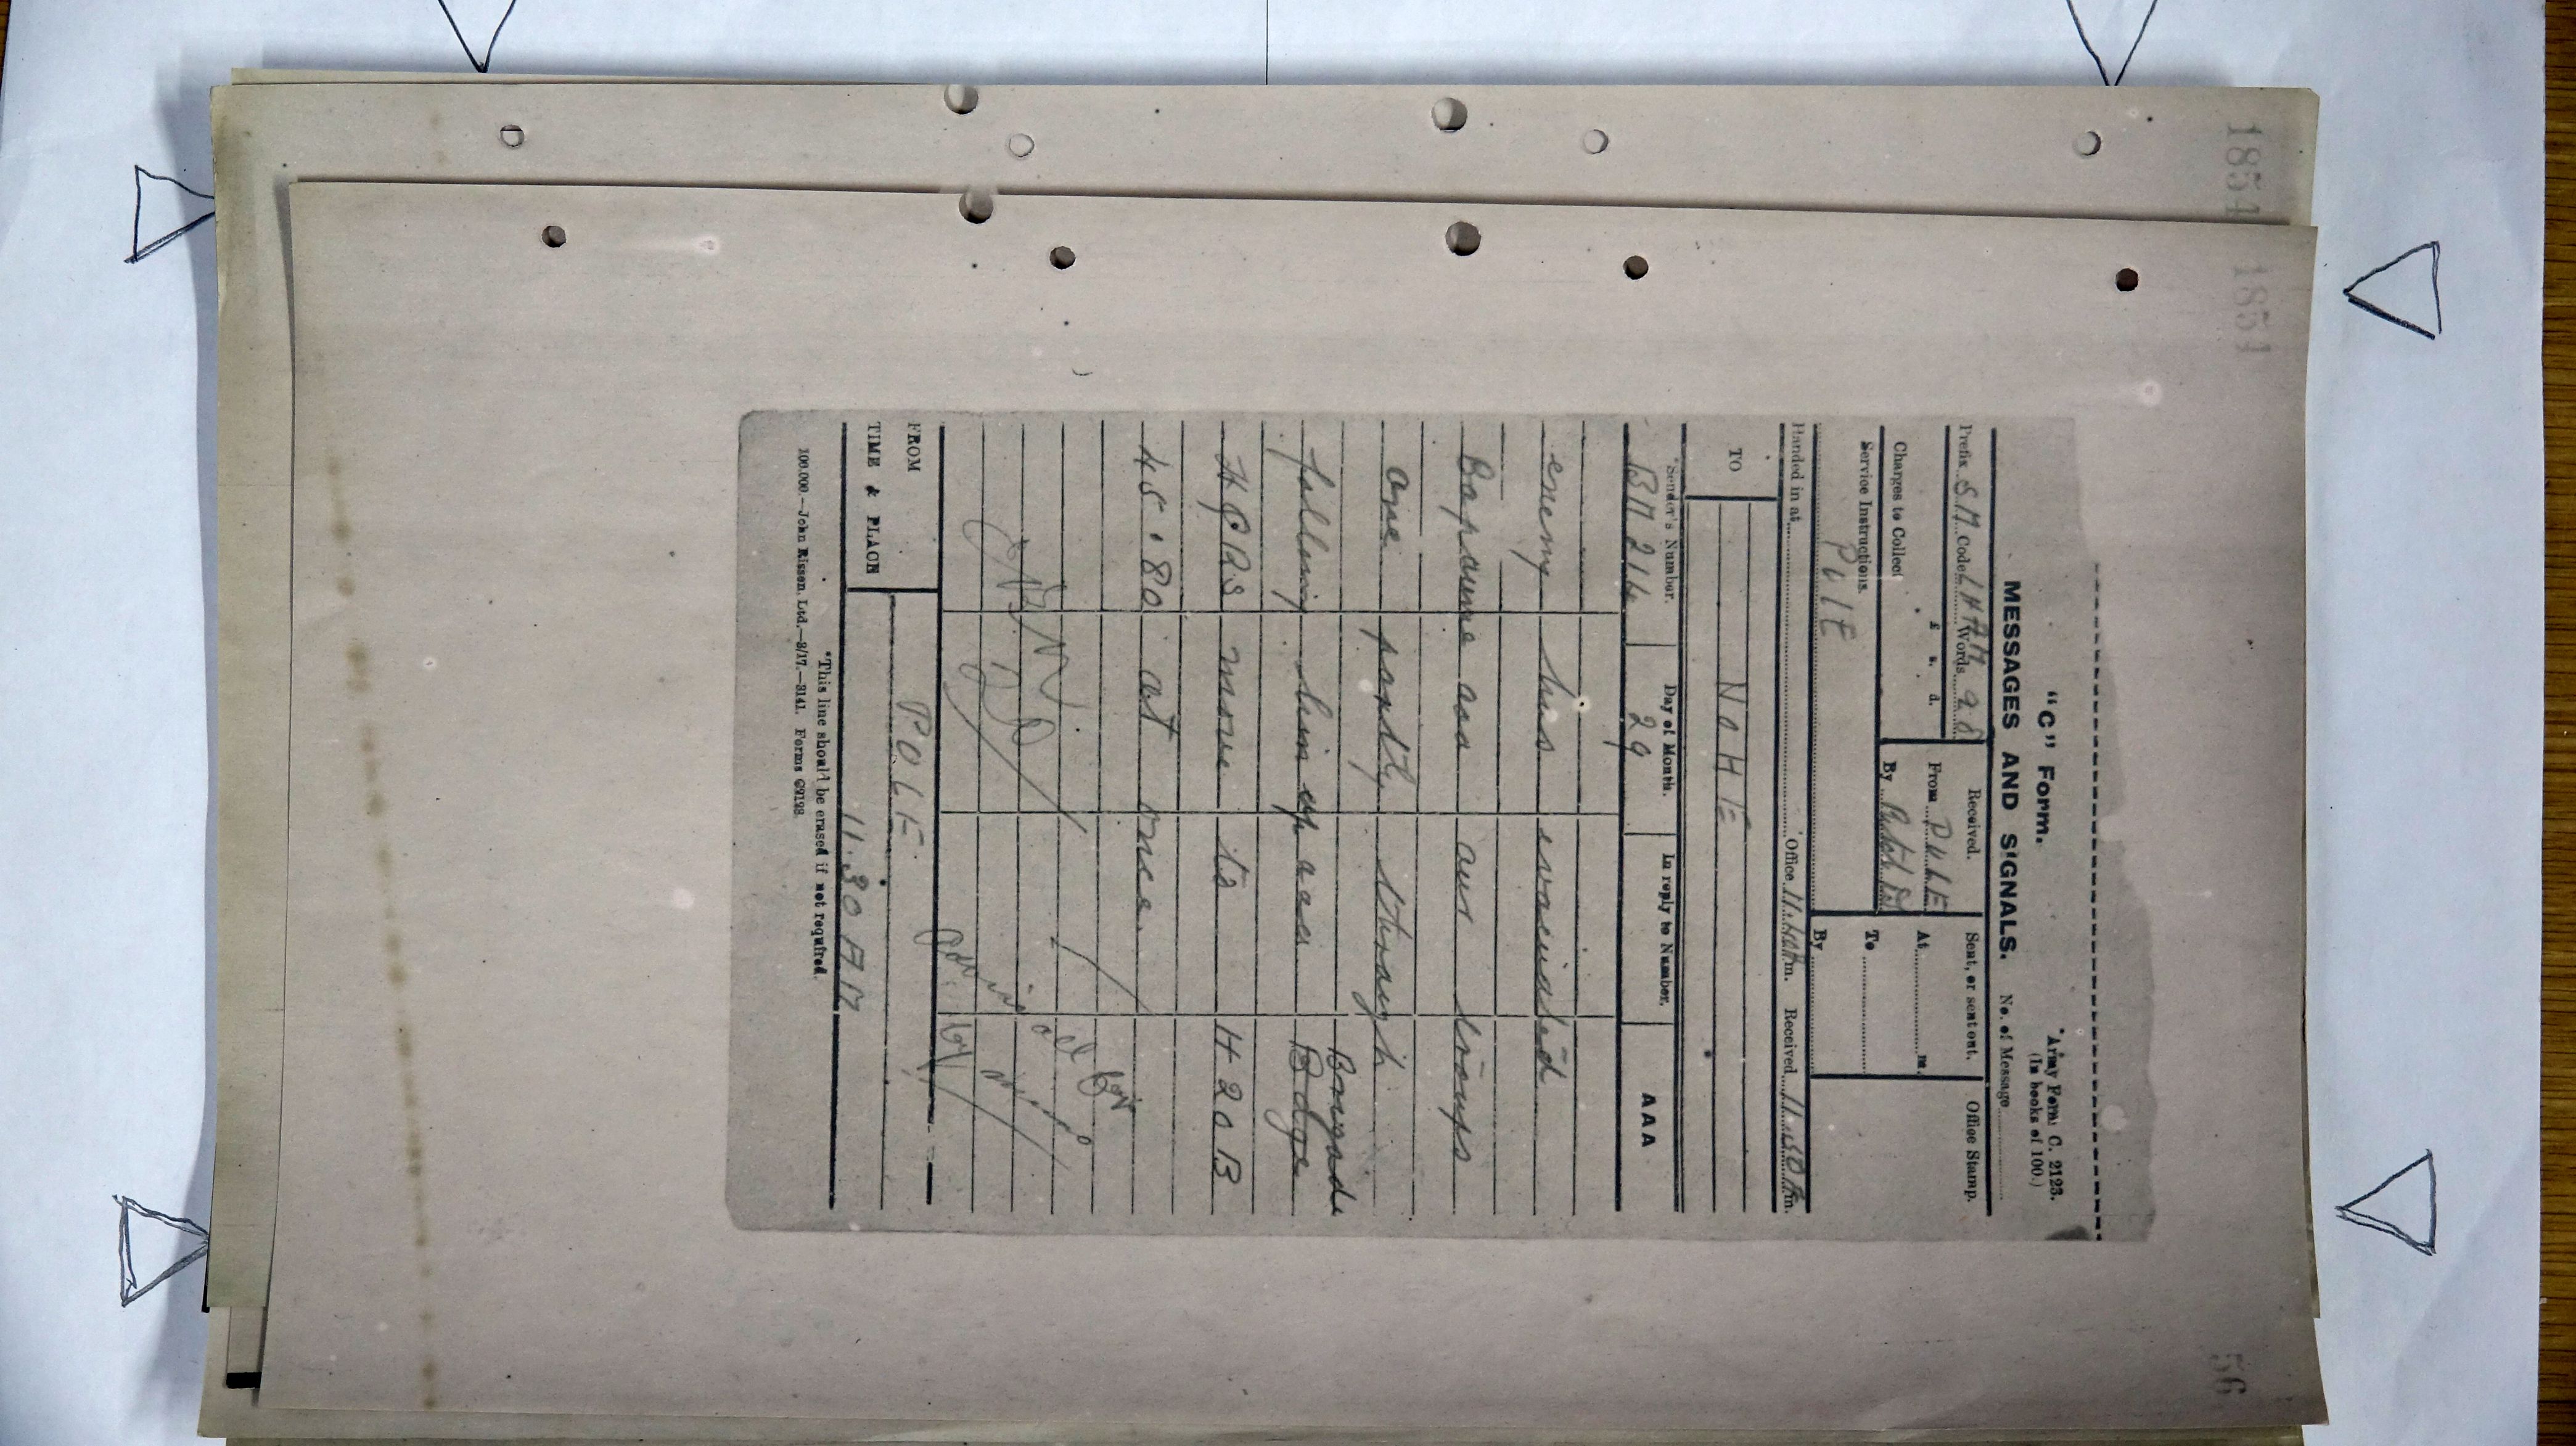 1854
1854
56
"C" Form.
*Army Form C. 2123.
(In books of 100.)
MESSAGES AND SIGNALS.
No. of Message
Prefix SM Code Words 28
Received.
Sent, or sent out.
Office Stamp.
£ s. d.
From PULE
At m.
Charges to Collect
By
To
Service Instructions.
PULE
By
Handed in at Office m. Received m.
TO NOHE
*Sender's Number.
Day of Month.
In reply to Number.
AAA
BM 216
29
enemy has evacuated
Bapaume aaa our troops
are partly through
Brigade
following him up aaa Bdge
HQRS move to H 20 B
45.80 at once.
FROM
POLE
TIME & PLACE
11.30 AM
*This line should be erased if not required.
100,000.—John Rissen, Ltd.—8/17.—3141. Forms C2123.